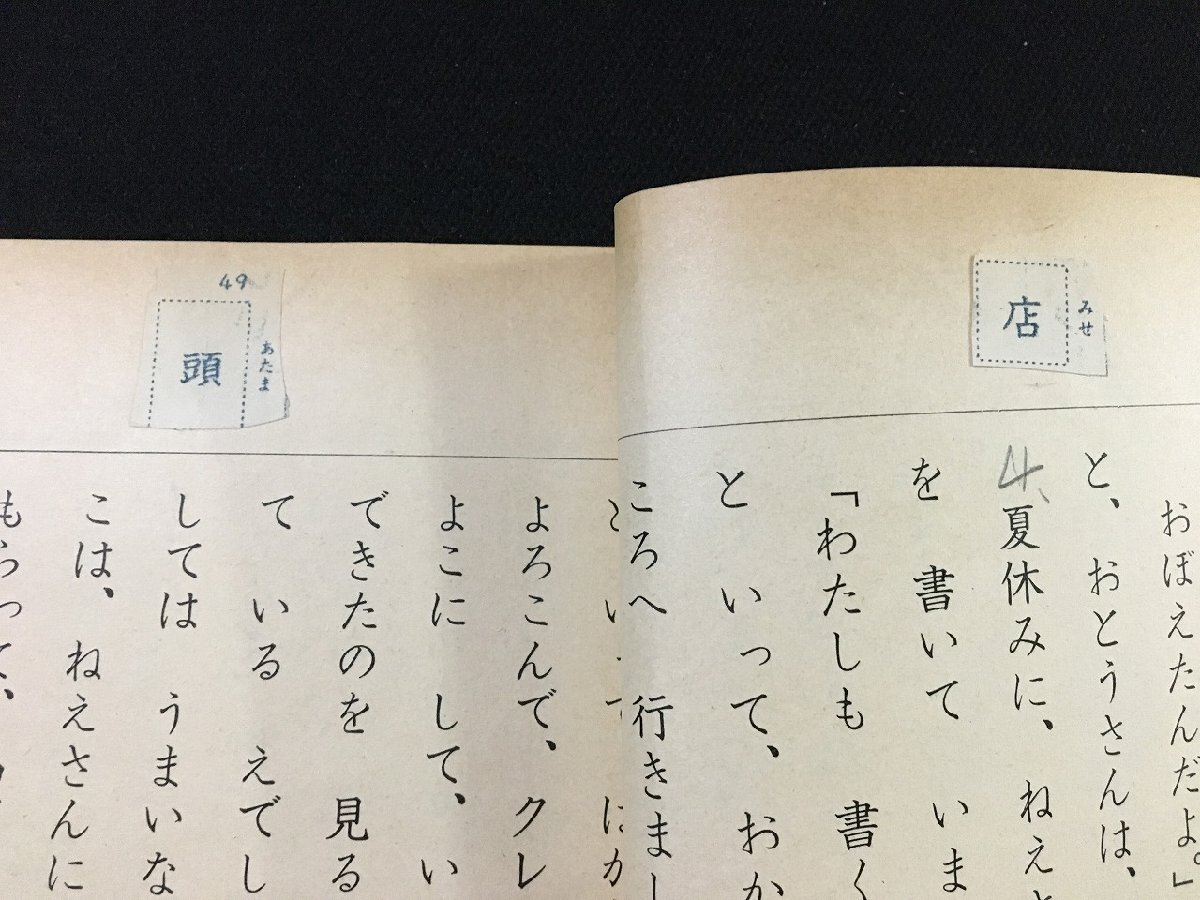 店
みせ
おぼえたんだよ。」
と、おとうさんは、
4、夏休みに、ねえさ
を 書いて いま
「わたしも 書く
と いって、おか
ころへ 行きまし
49
頭
あたま
よろこんで、クレ
よこに して、い
できたのを 見る
て いる えでし
しては うまいな
こは、ねえさんに
もらって、